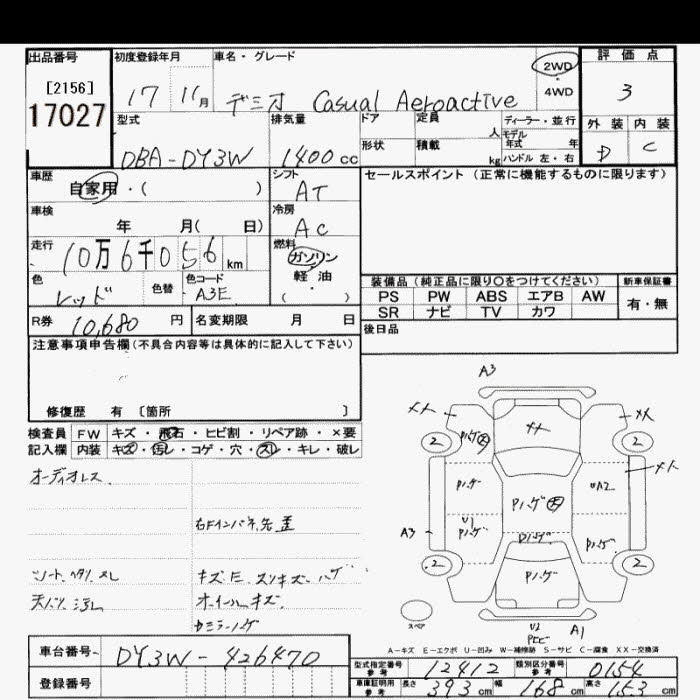 出品番号 初度登録年月 車名・グレード 評価点
[2156]
17027
17 11月 デミオ Casual Aeroactive
2WD
4WD
3
型式 排気量 ドア 定員 人 ディーラー・並行
モデル年式 年
外装 内装
DBA-DY3W 1400cc 形状 積載 kg ハンドル 左・右
D C
車歴 自家用・( ) シフト AT
セールスポイント(正常に機能するものに限ります)
車検 年 月( 日) 冷房 AC
走行 10万6千056km 燃料 ガソリン
軽・油
( )
色 レッド 色替 色コード A3E
装備品(純正品に限り○をつけてください) 新車保証書
PS PW ABS エアB AW 有・無
SR ナビ TV カワ
R券 10,680円 名変期限 月 日
後日品
注意事項申告欄(不具合内容等は具体的に記入して下さい)
修復歴 有 〔箇所 〕
検査員 FW キズ・飛石・ヒビ割・リペア跡・×要
記入欄 内装 キズ・汚レ・コゲ・穴・スレ・キレ・破レ
オーディオレス
右Fインパネ先歪
シートヘタリ、スレ
キズE、スリキズ、ハゲ
天バリ汚レ
オイールキズ
A3
メメ メメ メメ メメ
2 2
Pハゲ
Pハゲ Pハゲ UA2
A3 U1 Pハゲ Pハゲ Pハゲ
2 Pハゲ 2
スペア U2 A1
A-キズ E-エクボ U-凹み W-補修跡 S-サビ C-腐食 XX-交換済
車台番号 DY3W-426470
型式指定番号 参考 12412 類別区分番号 参考 0154
登録番号
車庫証明用 参考 長さ 393cm 幅 168cm 高さ 153cm